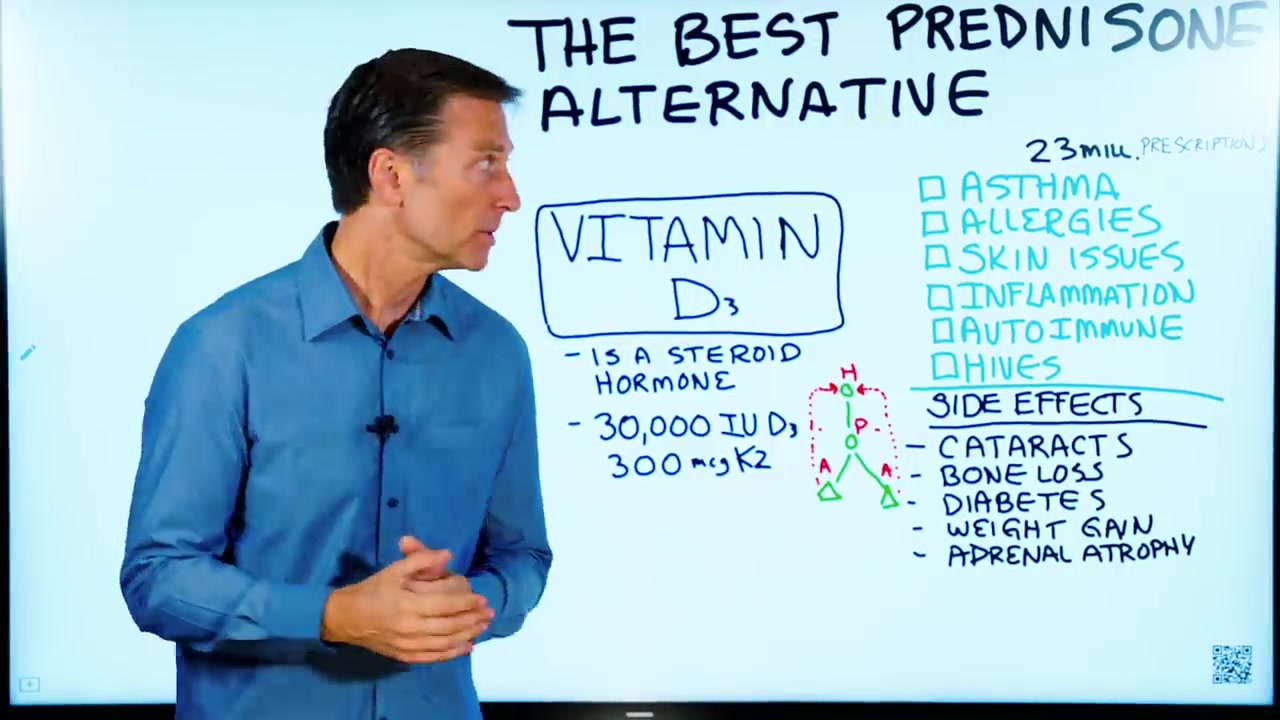 THE BEST PREDNISONE
ALTERNATIVE
23 MILL. PRESCRIPTIONS
VITAMIN
D3
- IS A STEROID
HORMONE
- 30,000 IU D3
300 mcg K2
H
P
A A
□ ASTHMA
□ ALLERGIES
□ SKIN ISSUES
□ INFLAMMATION
□ AUTOIMMUNE
□ HIVES
SIDE EFFECTS
- CATARACTS
- BONE LOSS
- DIABETES
- WEIGHT GAIN
- ADRENAL ATROPHY